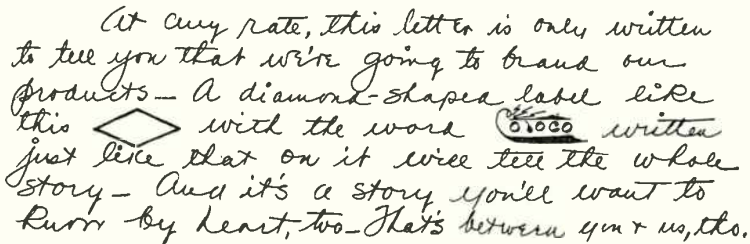 At any rate, this letter is only written
to tell you that we're going to brand our
products— A diamond-shaped label like
this with the word written
just like that on it will tell the whole
story— And it's a story you'll want to
know by heart, too— That's between you & us, tho.